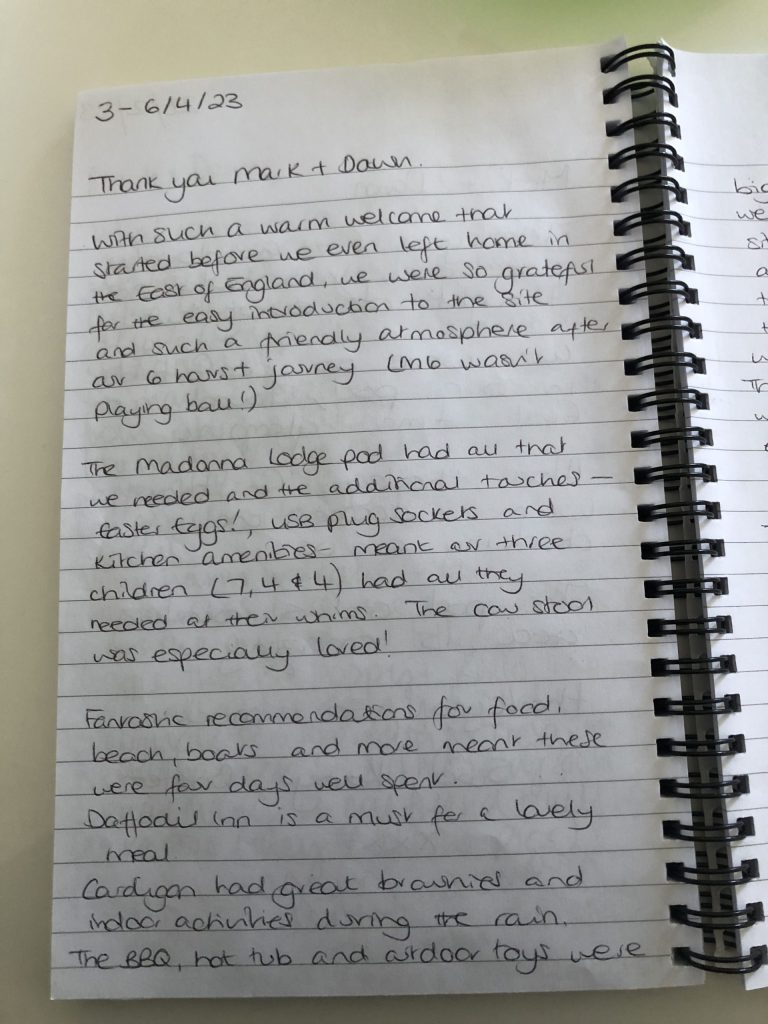 3-6/4/23
Thank you Mark + Dawn.
With such a warm welcome that
started before we even left home in
the East of England, we were so grateful
for the easy introduction to the site
and such a friendly atmosphere after
our 6 hours+ journey (M6 wasn't
playing ball!)
The Madonna Lodge pod had all that
we needed and the additional touches -
Easter Eggs!, USB plug sockets and
kitchen amenities - meant our three
children (7, 4 & 4) had all they
needed at their whims. The cow stool
was especially loved!
Fantastic recommendations for food,
beach, boats and more meant these
were four days well spent.
Daffodil Inn is a must for a lovely
meal
Cardigan had great brownies and
indoor activities during the rain.
The BBQ, hot tub and outdoor toys were
big
we